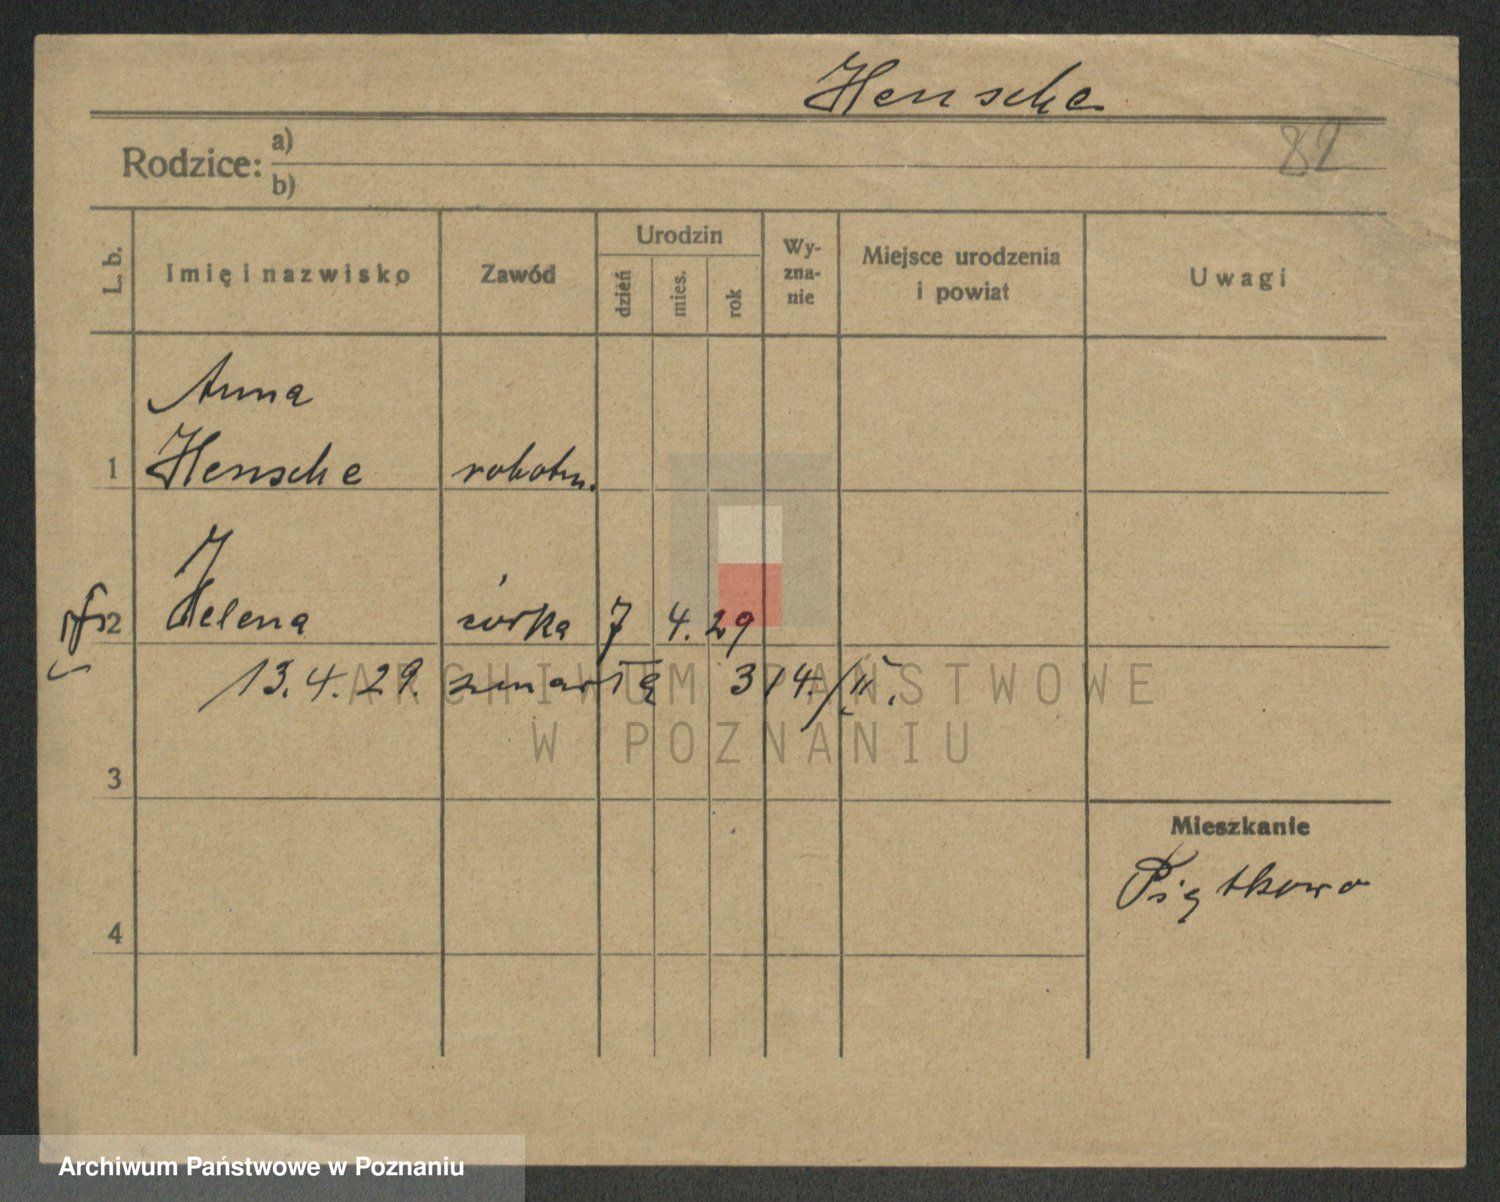 Hensche
82
Rodzice: a)
b)
L. b.
Imię i nazwisko
Zawód
Urodzin
dzień
mies.
rok
Wy-
zna-
nie
Miejsce urodzenia
i powiat
Uwagi
Anna
1 Hensche robotn.
2 Helena córka 7 4. 29
13. 4. 29. zmarła 314./II.
3
Mieszkanie
Piątkowo
4
ARCHIWUM PAŃSTWOWE
W POZNANIU
Archiwum Państwowe w Poznaniu